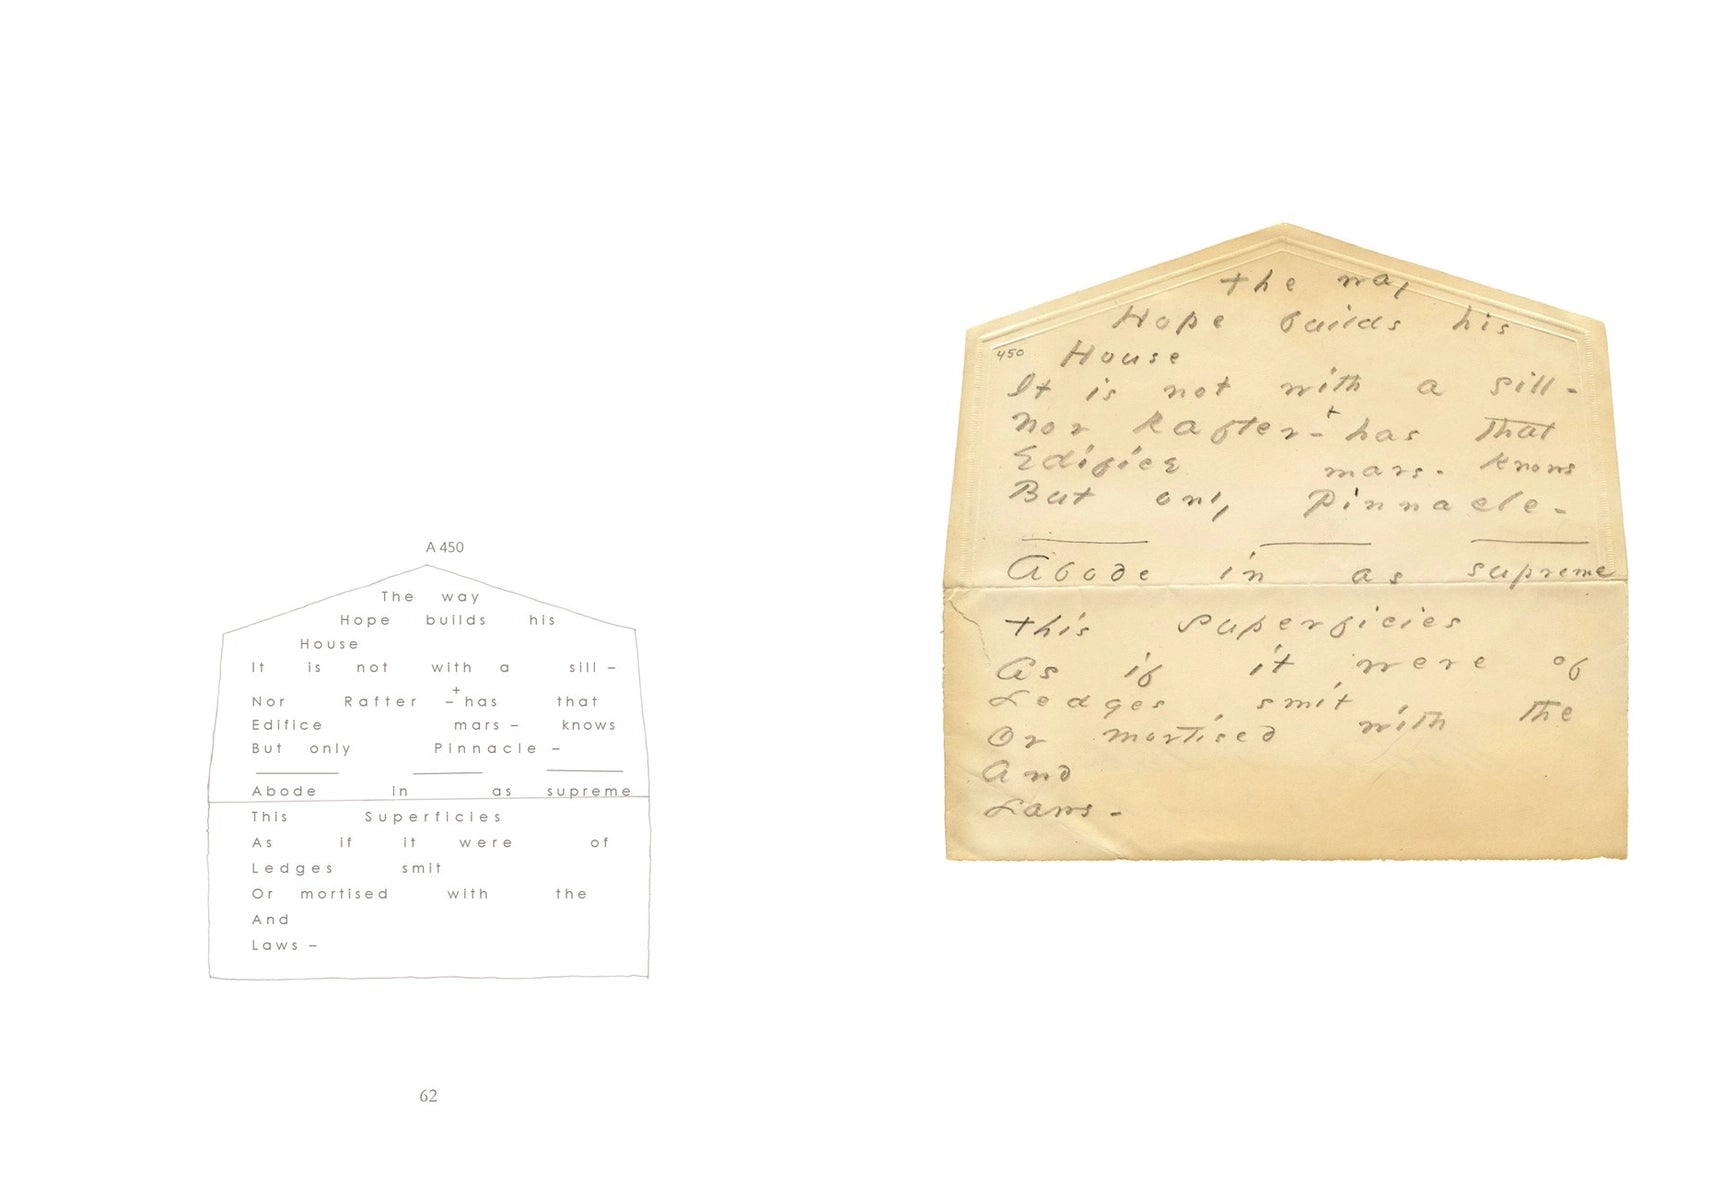 A 450
The way
Hope builds his
House
It is not with a sill –
Nor Rafter –+has that
Edifice mars – knows
But only Pinnacle –
Abode in as supreme
This Superficies
As if it were of
Ledges smit
Or mortised with the
And
Laws –
62
The way
Hope builds his
450 House
It is not with a sill –
Nor Rafter –+has that
Edifice mars – knows
But only Pinnacle –
Abode in as supreme
This Superficies
As if it were of
Ledges smit
Or mortised with the
And
Laws –